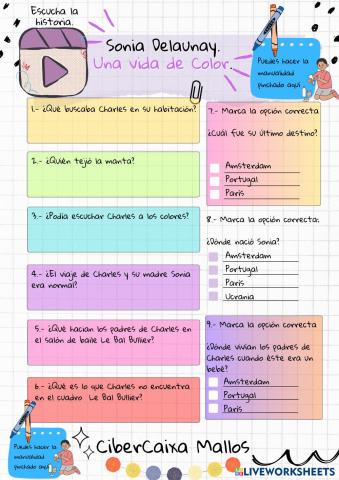 Escucha la
historia.
Sonia Delaunay.
Una vida de Color.
Puedes hacer la
manualidad
pinchado aquí
1.- ¿Qué buscaba Charles en su habitación?
2.- ¿Quién tejió la manta?
3.- ¿Podía escuchar Charles a los colores?
4.- ¿El viaje de Charles y su madre Sonia
era normal?
5.- ¿Qué hacían los padres de Charles en
el salón de baile Le Bal Bullier?
6.- ¿Qué es lo que Charles no encuentra
en el cuadro Le Bal Bullier?
7.- Marca la opción correcta
¿Cuál fue su último destino?
Amsterdam
Portugal
París
8.- Marca la opción correcta.
¿Dónde nació Sonia?
Amsterdam
Portugal
París
Ucrania
9.- Marca la opción correcta
¿Dónde vivían los padres de
Charles cuando éste era un
bebé?
Amsterdam
Portugal
París
Puedes hacer la
manualidad
pinchado aquí
CiberCaixa Mallos
LIVEWORKSHEETS